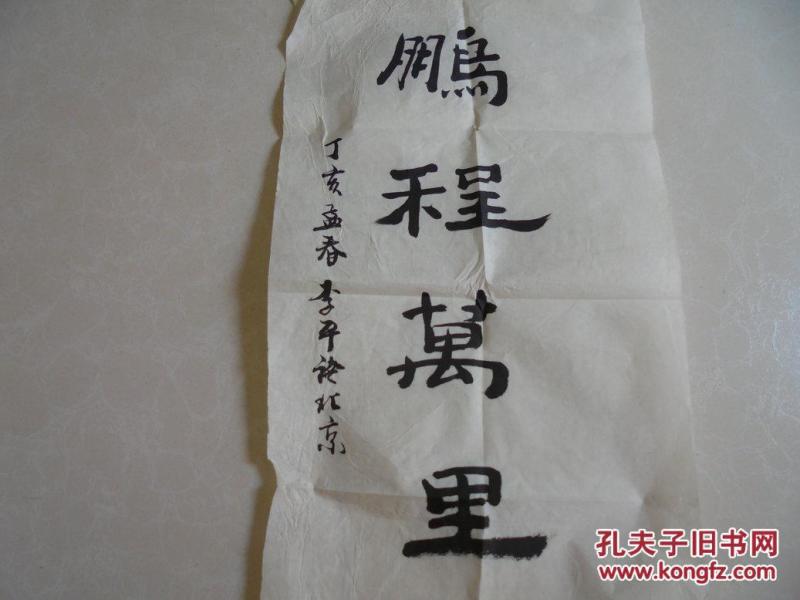 鵬程萬里
丁亥孟春李平 北京
孔夫子旧书网
www.kongfz.com